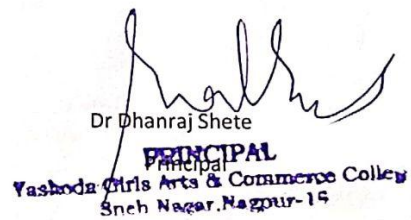 Dr Dhanraj Shete
PRINCIPAL
Principal
Yashoda Girls Arts & Commerce Colleg
Sneh Nagar, Nagpur-15